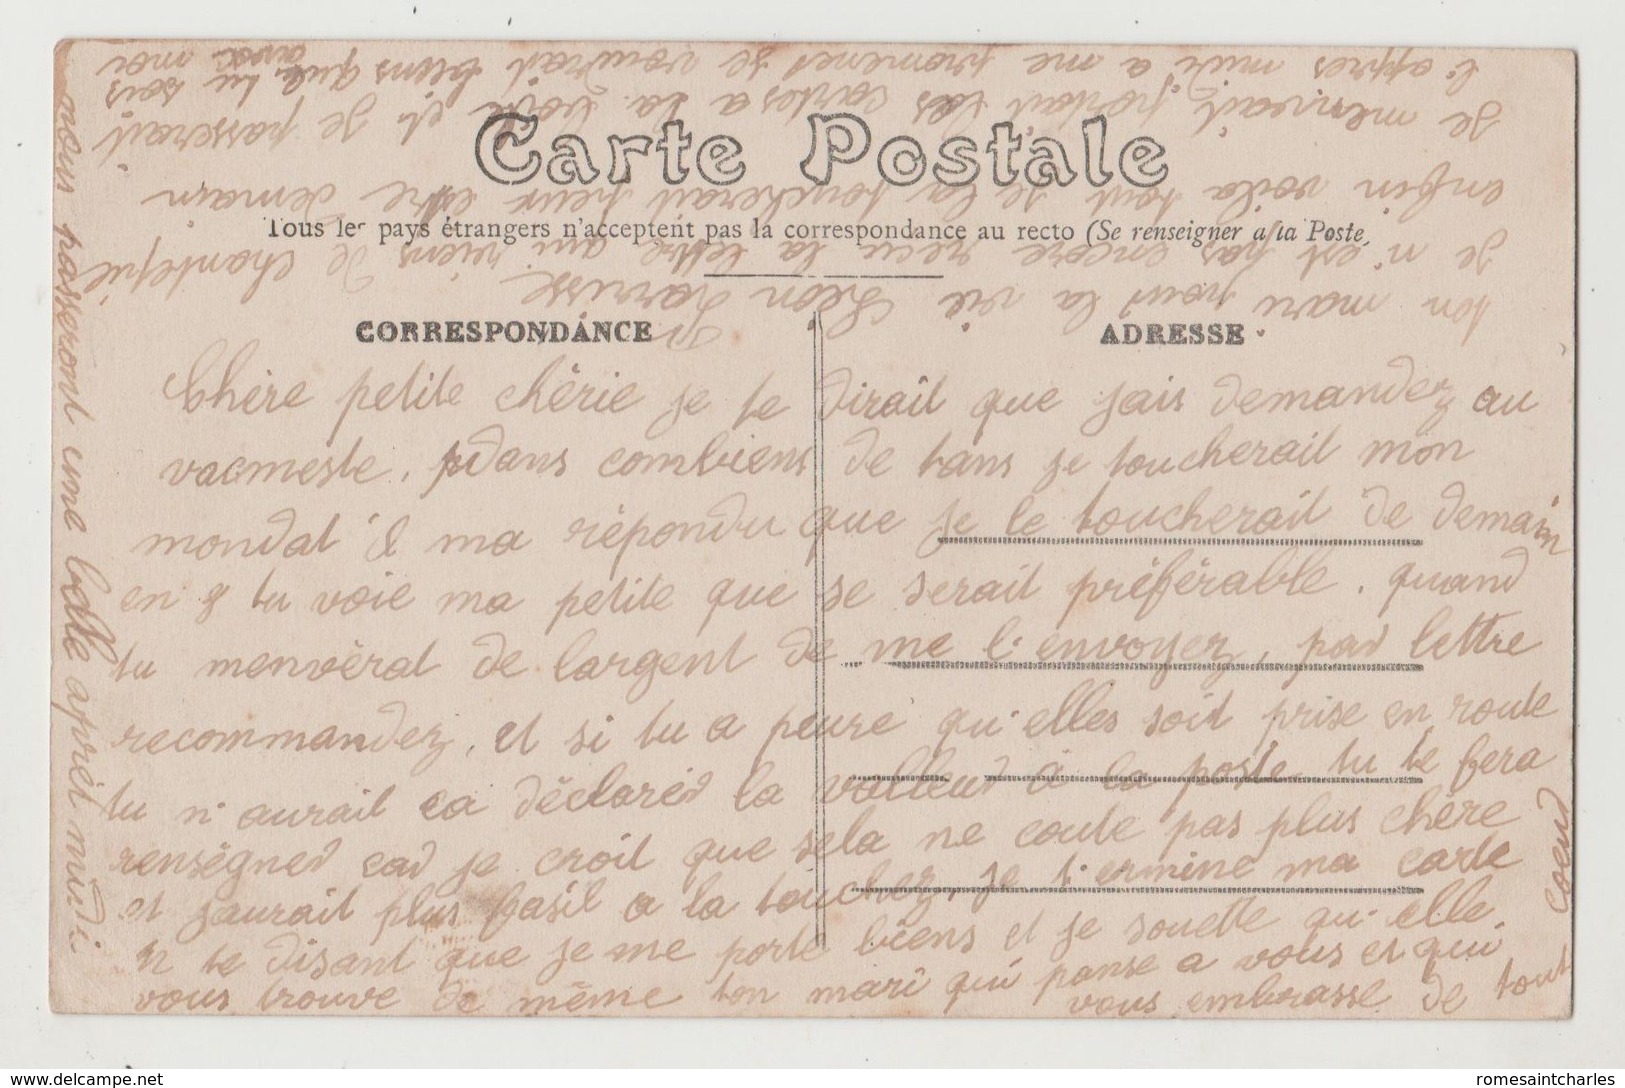 Carte Postale
Tous les pays étrangers n'acceptent pas la correspondance au recto (Se renseigner a la Poste,
CORRESPONDANCE
ADRESSE
Chère petite chèrie je te dirait que jais demandez au
vacmeste, dans combiens de tans je toucherait mon
mondat il ma rèpondu que je le toucherait de demain
en 8 tu voie ma petite que se serait prèfèrable. quand
tu menvèrat de largent de me l'envoyez, par lettre
recommandez, et si tu a peure qu'elles soit prise en route
tu n'aurait ca dèclarer la valleur à la poste tu te fera
rensègner car je croit que sela ne coute pas plus chère
et jaurait plus fasil a la touchez, je termine ma carte
n te disant que je me porte biens et je souette qu'elle
vous trouve de même ton mari qui panse a vous et qui
vous embrasse de tout coeur
ton mari pour la vie Léon
je n'est pas encore recu la lettre qui viens de
enfin voila tout je la toucherait peut etre demain
je menvait portait las cartes a la poste et je passerait
l'appres midi a me promener je voudrait biens que tu sois
avec moi
nous passeront une belle aprèt midi.
romesaintcharles
www.delcampe.net